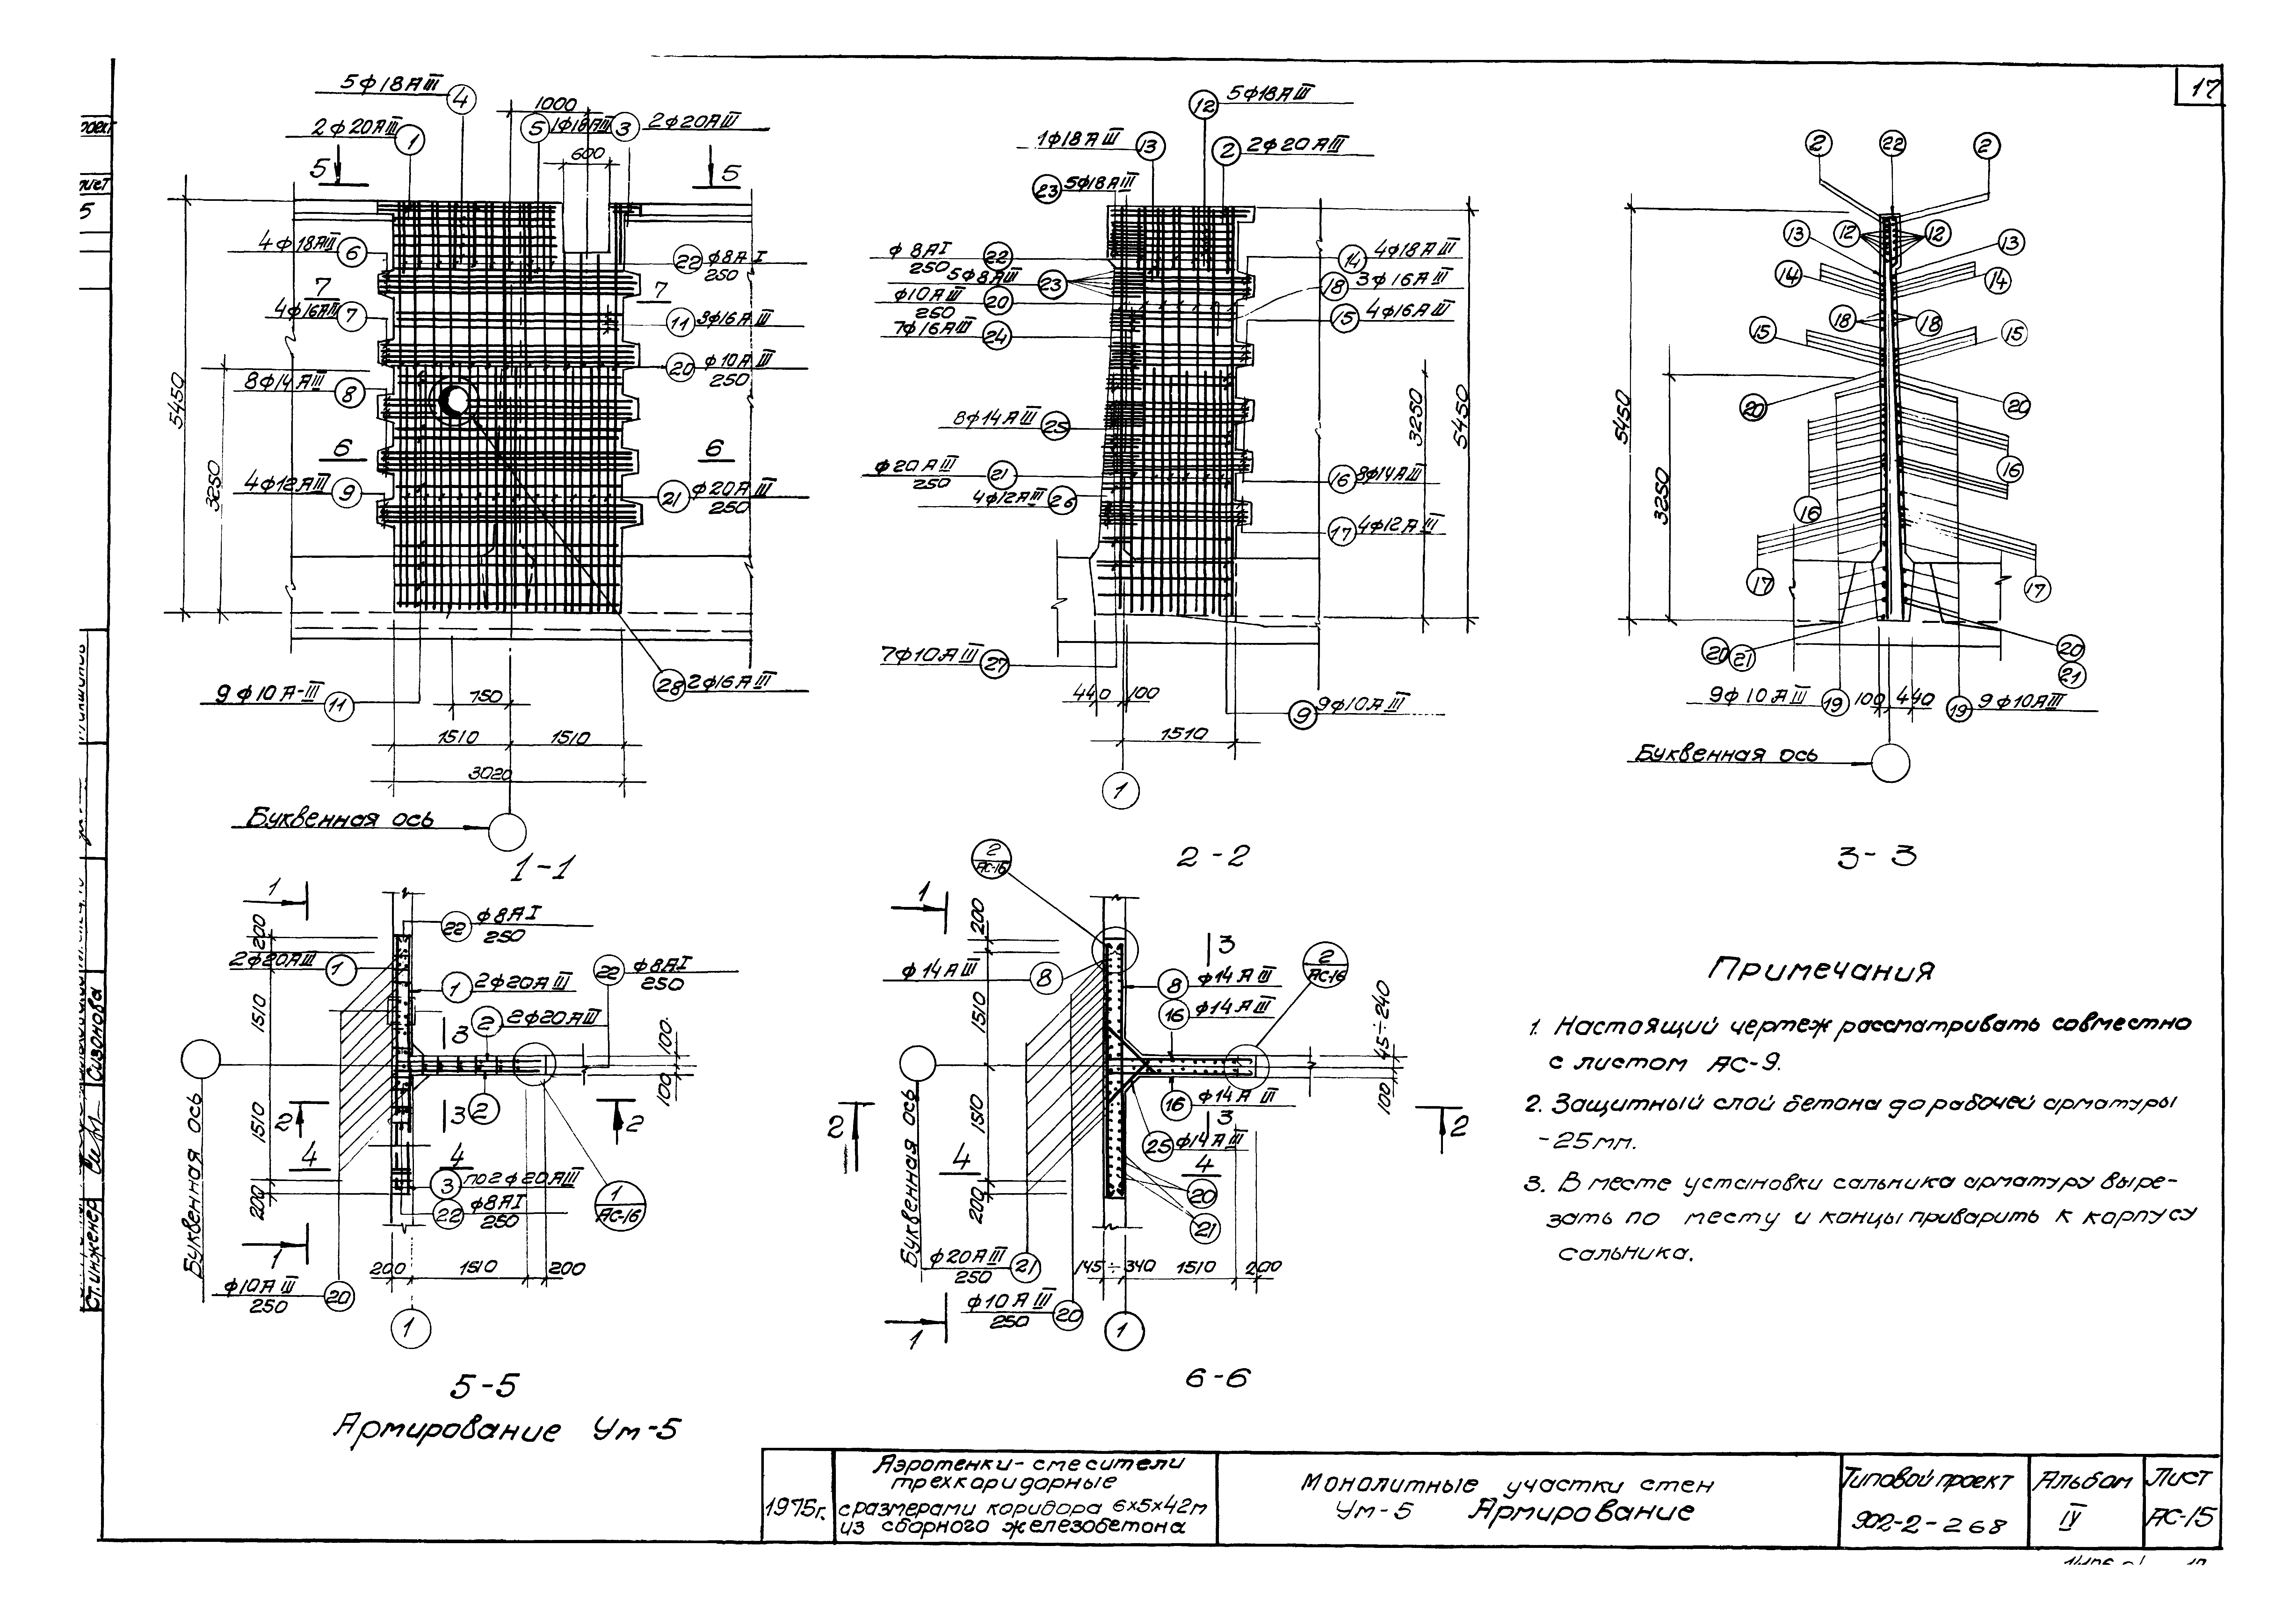 17
5ф18АIII
4
1000
2ф20АIII
1
5
1ф18АIII
3
2ф20АIII
600
5
5
4ф18АIII
6
22
ф8АI
250
7
7
4ф16АIII
7
11
3ф16АIII
20
ф10АIII
250
8ф14АIII
8
5450
3250
6
6
4ф12АIII
9
21
ф20АIII
250
28
2ф16АIII
9ф10А-III
11
750
1510
1510
3020
Буквенная ось
1-1
12
5ф18АIII
1ф18АIII
13
2
2ф20АIII
23
5ф18АIII
ф8АI
250
22
5ф8АIII
23
ф10АIII
250
20
7ф16АIII
24
14
4ф18АIII
18
3ф16АIII
15
4ф16АIII
8ф14АIII
25
ф20АIII
250
21
4ф12АIII
26
16
8ф14АIII
17
4ф12АIII
3250
5450
7ф10АIII
27
440
100
9
9ф10АIII
1510
1
2-2
2
22
2
13
12
12
13
14
14
18
18
15
15
20
20
16
16
17
17
5450
3250
20
21
20
21
9ф10АIII
19
100
440
19
9ф10АIII
Буквенная ось
3-3
1
200
22
ф8АI
250
2ф20АIII
1
1
2ф20АIII
22
ф8АI
250
3
2
2ф20АIII
1510
100
100
1510
2
3
2
2
4
4
3
по2ф20АIII
22
ф8АI
250
1
АС-16
200
1
Буквенная ось
200
1510
200
ф10АIII
250
20
1
5-5
Армирование Ум-5
2
АС-16
1
200
3
2
АС-16
ф14АIII
8
8
ф14АIII
16
ф14АIII
1510
45÷240
100
16
ф14АIII
3
2
2
1510
25
ф14АIII
4
4
20
21
200
Буквенная ось
ф20АIII
250
21
145÷340
1510
200
ф10АIII
250
20
1
1
6-6
Примечания
1. Настоящий чертеж рассматривать совместно
с листом АС-9.
2. Защитный слой бетона до рабочей арматуры
-25мм.
3. В месте установки сальника арматуру выре-
зать по месту и концы приварить к корпусу
сальника.
1975г.
Аэротенки-смесители
трехкоридорные
с размерами коридора 6х5х42м
из сборного железобетона
Монолитные участки стен
Ум-5 Армирование
Типовой проект
902-2-268
Альбом
IV
Лист
АС-15
Ст. инженер
Сизонова